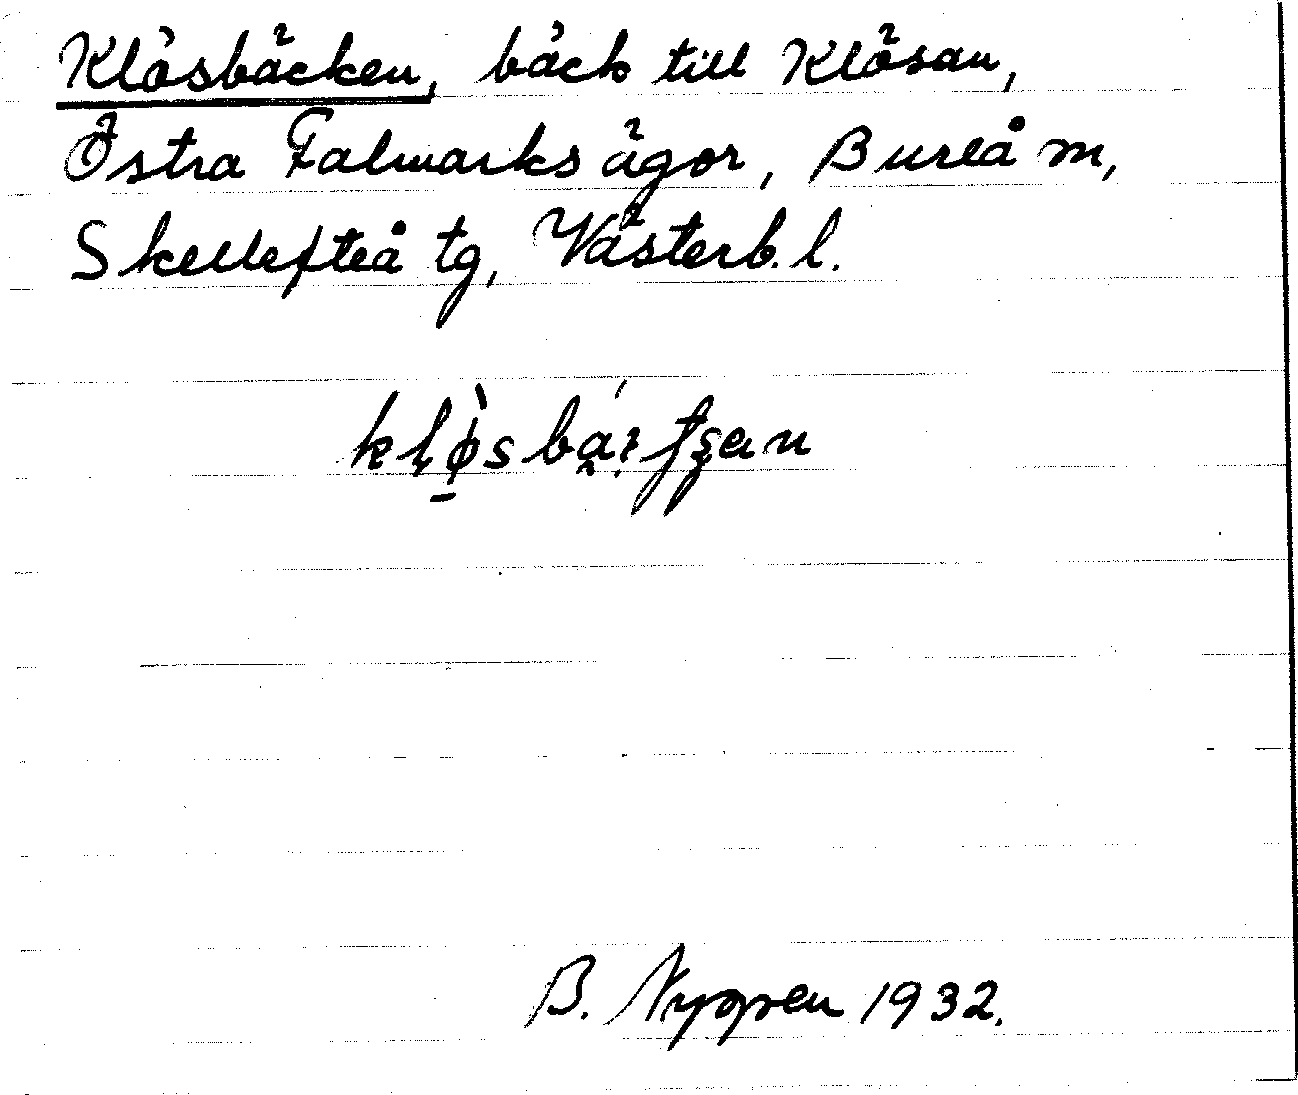 Klösbäcken, bäck till Klösan,
Östra Falmarks ägor, Bureå m,
Skellefteå tg, Västerb. l.
B. Nygren 1932.